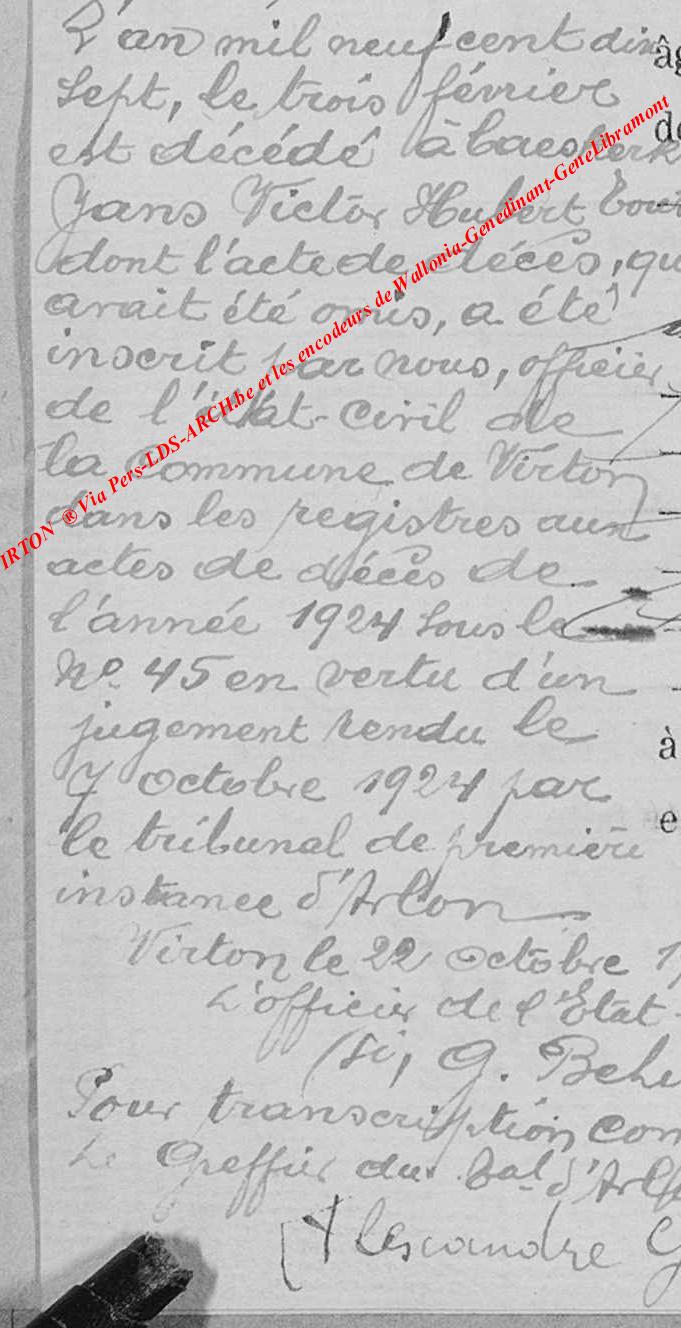 L'an mil neuf cent dix
Sept, le trois février
est décédé à
Jans Victor Hubert
dont l'acte de décès, qu
avait été omis, a été
inscrit par nous, officier
de l'état-civil de
la Commune de Virton
dans les registres aux
actes de décès de
l'année 1924 sous le
No 45 en vertu d'un
jugement rendu le
7 octobre 1924 par
le tribunal de première
instance d'Arlon
Virton le 22 octobre 1
L'officier de l'Etat-
(si, G. Behe
Pour transcription con
Le Greffier du bal d'Arl
Alexandre G
IRTON ® Via Pers-LDS-ARCH.be et les encodeurs de Wallonia-Genedinant-GeneLibramont
âg
de
à
e